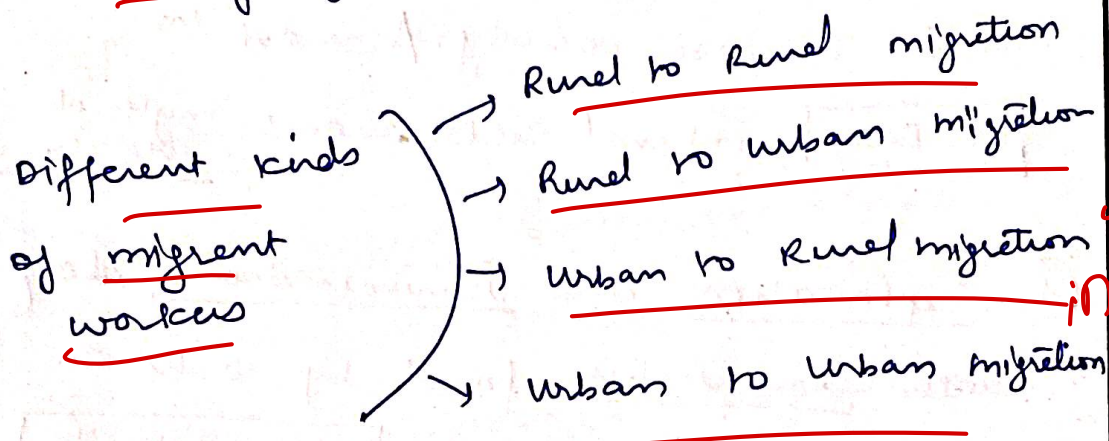 Different kinds
of migrant
workers
→ Rural to Rural migration
→ Rural to urban migration
→ urban to Rural migration
→ urban to urban migration
in